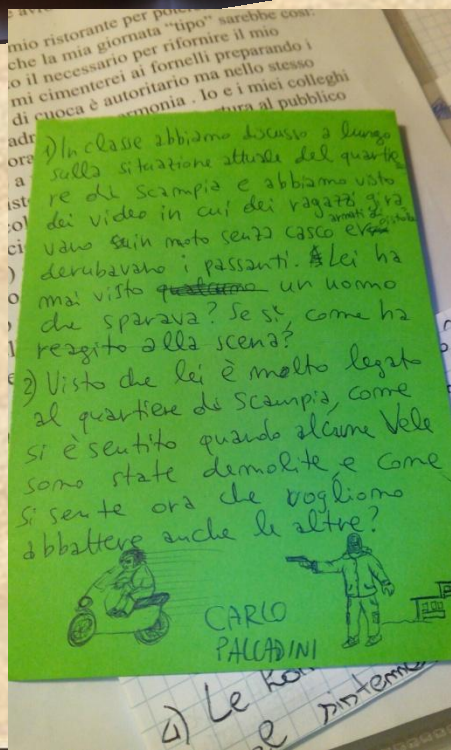 mio ristorante per sarebbe così:
che la mia giornata "tipo"
o il necessario per rifornire il mio
mi cimenterei ai fornelli preparando i
di cuoca è autoritario ma nello stesso
armonia . Io e i miei colleghi
al pubblico
1) In classe abbiamo discusso a lungo
sulla situazione attuale del quartie
re di Scampia e abbiamo visto
dei video in cui dei ragazzi gira
vano in moto senza casco e
armati di pistola
derubavano i passanti. Lei ha
mai visto qualcuno un uomo
che sparava? Se sì, come ha
reagito alla scena?
2) Visto che lei è molto legato
al quartiere di Scampia, come
si è sentito quando alcune Vele
sono state demolite, e come
si sente ora che vogliono
abbattere anche le altre?
CARLO
PALLADINI
4) Le
e